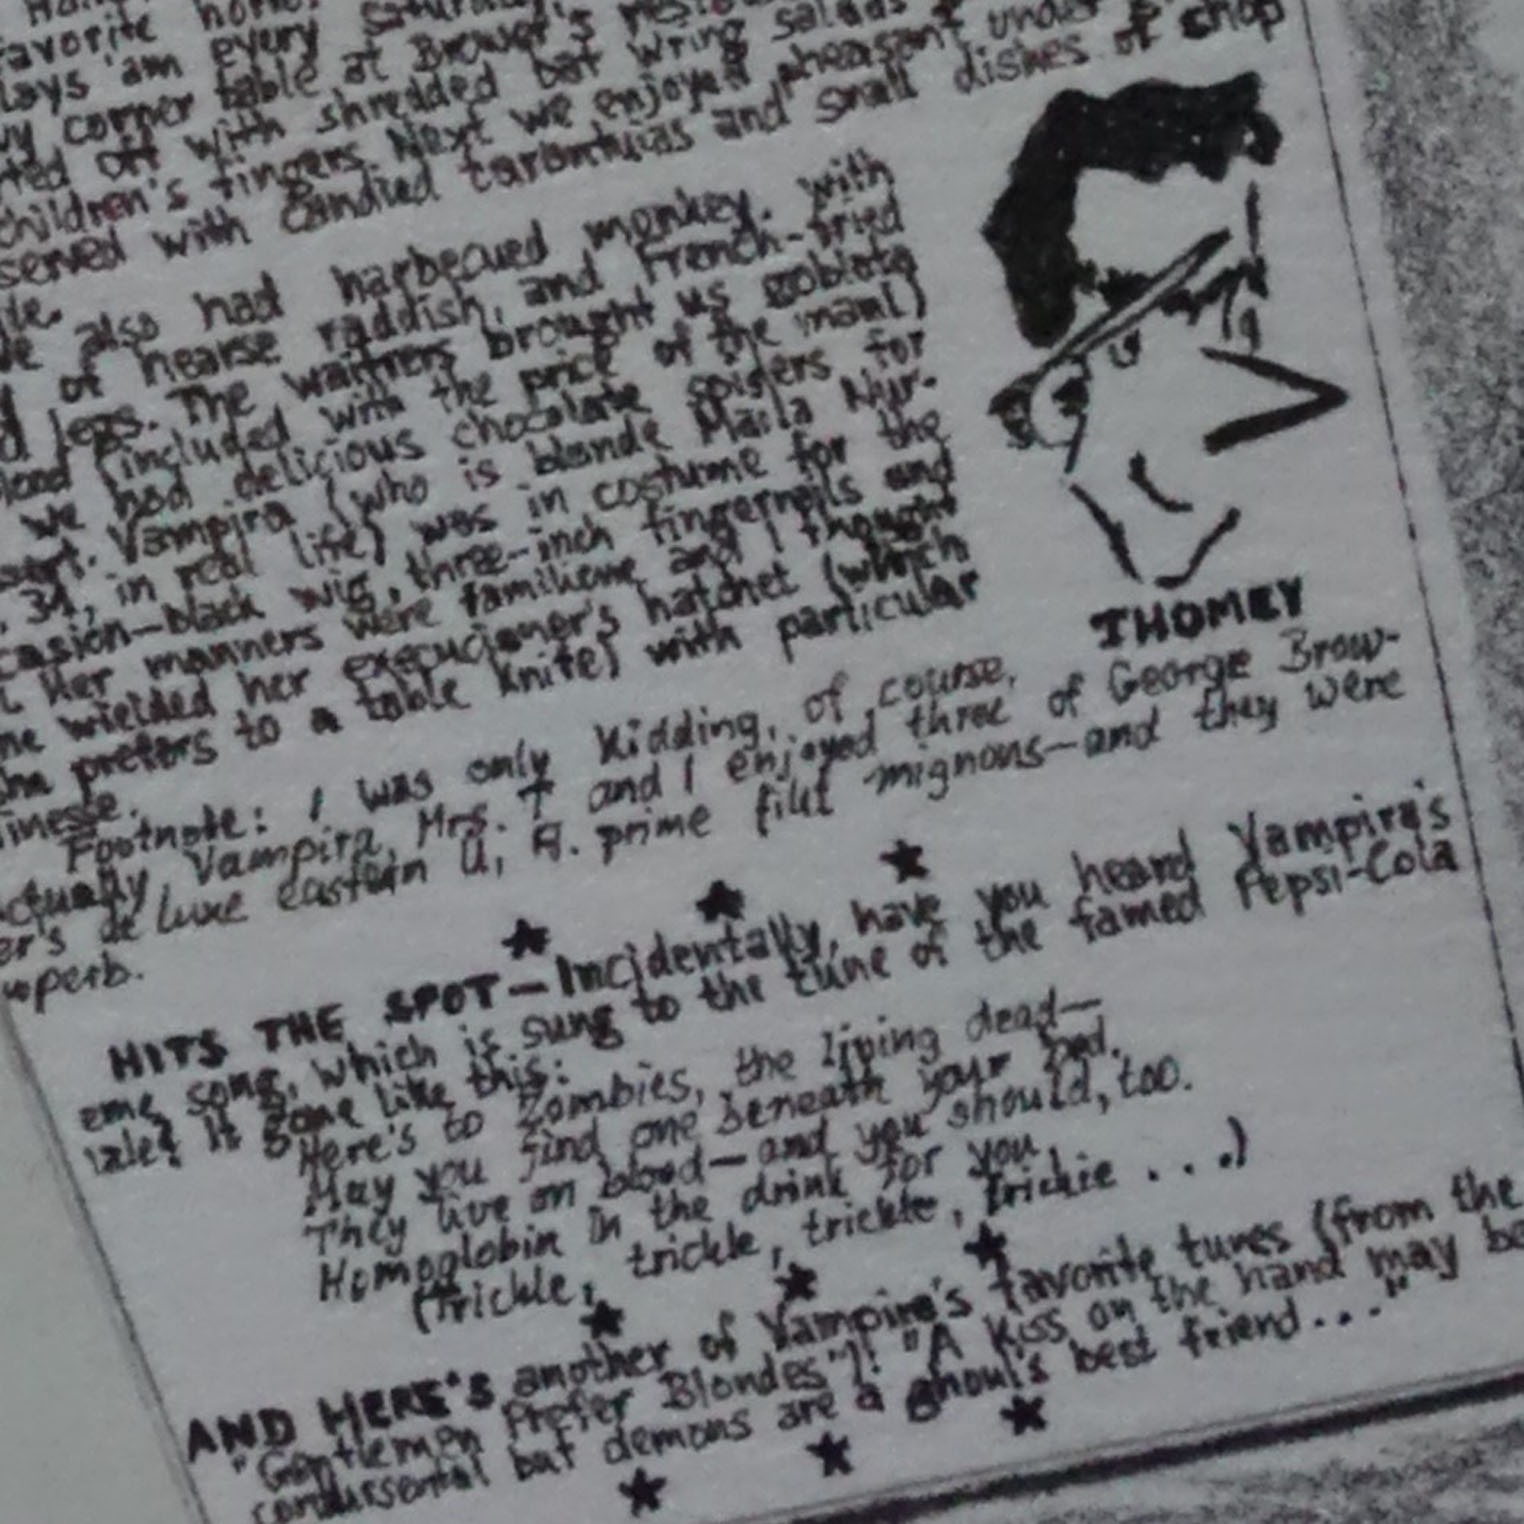 favorite
lays 'am every
corner table at Brower's
off with shredded bat wring salads
children's fingers. Next we enjoyed pheasant under
served with candied tarantulas and small dishes of chop
also had barbecued monkey. with
of hearse raddish, and French-fried
legs. The waitters brought us goblets
(included with the price of the maml)
we had delicious chocolate spiders for
Vampira (who is blonde Maila Nur-
, 31, in real life) was in costume for the
casion—black wig, three-inch fingernails and
Her manners were familiene and I thought
wielded her execucioner's hatchet (which
prefers to a table knife) with particular
inesse.
THOMEY
Footnote: I was only kidding, of course.
ctually Vampira, Mrs. T and I enjoyed three of George Brow-
er's de luxe eastern U, A. prime filet mignons—and they were
uperb.
HITS THE SPOT—Incidentally, have you heard Vampira's
eme song, which is sung to the tune of the famed Pepsi-Cola
It gone like this:
Here's to Zombies, the living dead—
May you find one beneath your bed.
They live on blood—and you should, too.
Homoglobin in the drink for you
(trickle, trickle, trickle, trickie . . .)
AND HERE'S another of Vampira's favorite tunes (from the
"Gentlemen Prefer Blondes")! "A kiss on the hand may be
but demons are a ghoul's best friend..."